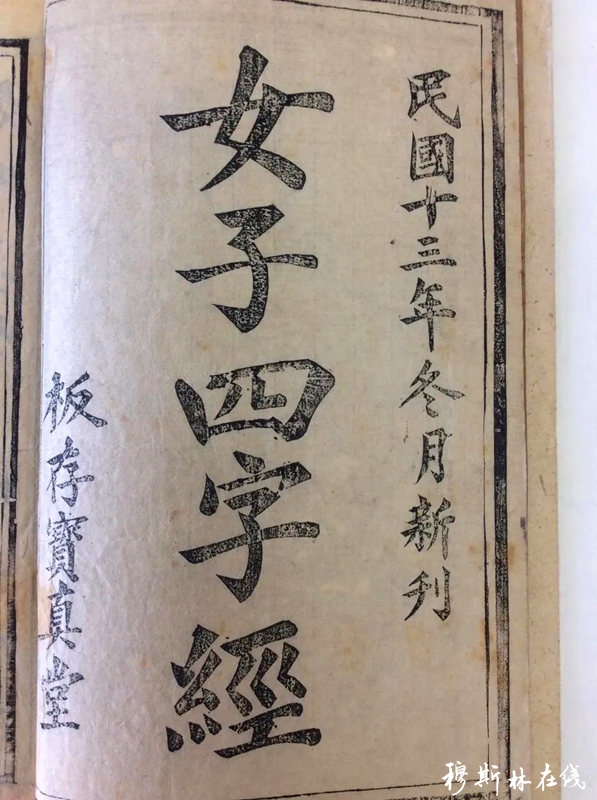 民國十三年冬月新刊
女子四字經
板存寶真堂
穆斯林在线